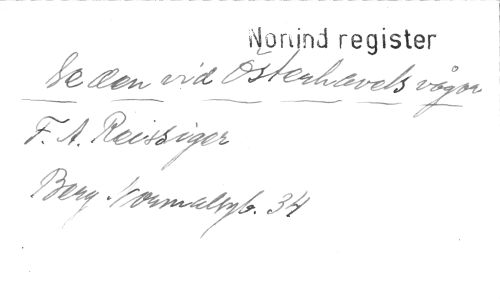 Nonind register
Se den vid Östenhavets vågor
F. A. Reissiger
Berg Normalsgb. 34